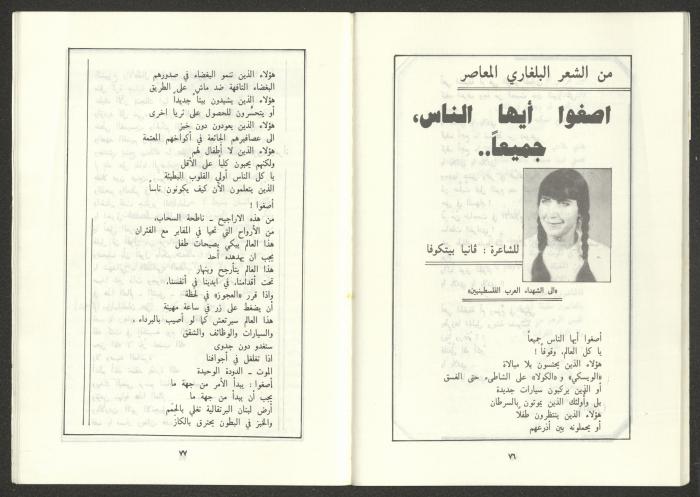 من الشعر البلغاري المعاصر
اصغوا أيها الناس،
جميعاً..
للشاعرة : ڤانيا بيتكوفا
«الى الشهداء العرب الفلسطينيين»
أصغوا أيها الناس جميعاً
يا كل العالم، وقوفا !
هؤلاء الذين يحتسون بلا مبالاة
«الويسكي» و «الكولا» على الشاطىء حتى الغسق
أو الذين يركبون سيارات جديدة
بل وأولئك الذين يموتون بالسرطان
هؤلاء الذين ينتظرون طفلاً
أو يحملونه بين أذرعهم
٧٦
هؤلاء الذين تنمو البغضاء في صدورهم
البغضاء التافهة ضد ماش على الطريق
هؤلاء الذين يشيدون بيتاً جديداً
أو يتحسرون للحصول على ثريا اخرى
هؤلاء الذين يعودون دون خبز
الى عصافيرهم الجائعة في أكواخهم المعتمة
هؤلاء الذين لا أطفال لهم
ولكنهم يحبون كلباً على الأقل
يا كل الناس أولي القلوب البطيئة
الذين يتعلمون الآن كيف يكونون ناساً
أصغوا !
من هذه الاراجيح - ناطحة السحاب،
من الأرواح التي تحيا في المقابر مع الفئران
هذا العالم يبكي بصيحات طفل
يجب ان يهدهده أحد
هذا العالم يتأرجح وينهار
تحت أقدامنا، في ايدينا في أنفسنا،
واذا قرر «العجوز» في لحظة
أن يضغط على زر في ساعة مهينة
هذا العالم سيرتعش كما لو أصيب بالبرداء .
والسيارات والوظائف والشقق
ستغدو دون جدوى
اذا تغلغل في أجوافنا
الموت - الدودة الوحيدة
أصغوا : يبدأ الأمر من جهة ما
يجب أن يبدأ من جهة ما
أرض لبنان البرتقالية تغلي بالحمم
والخبز في البطون يحترق بالكاز
٧٧